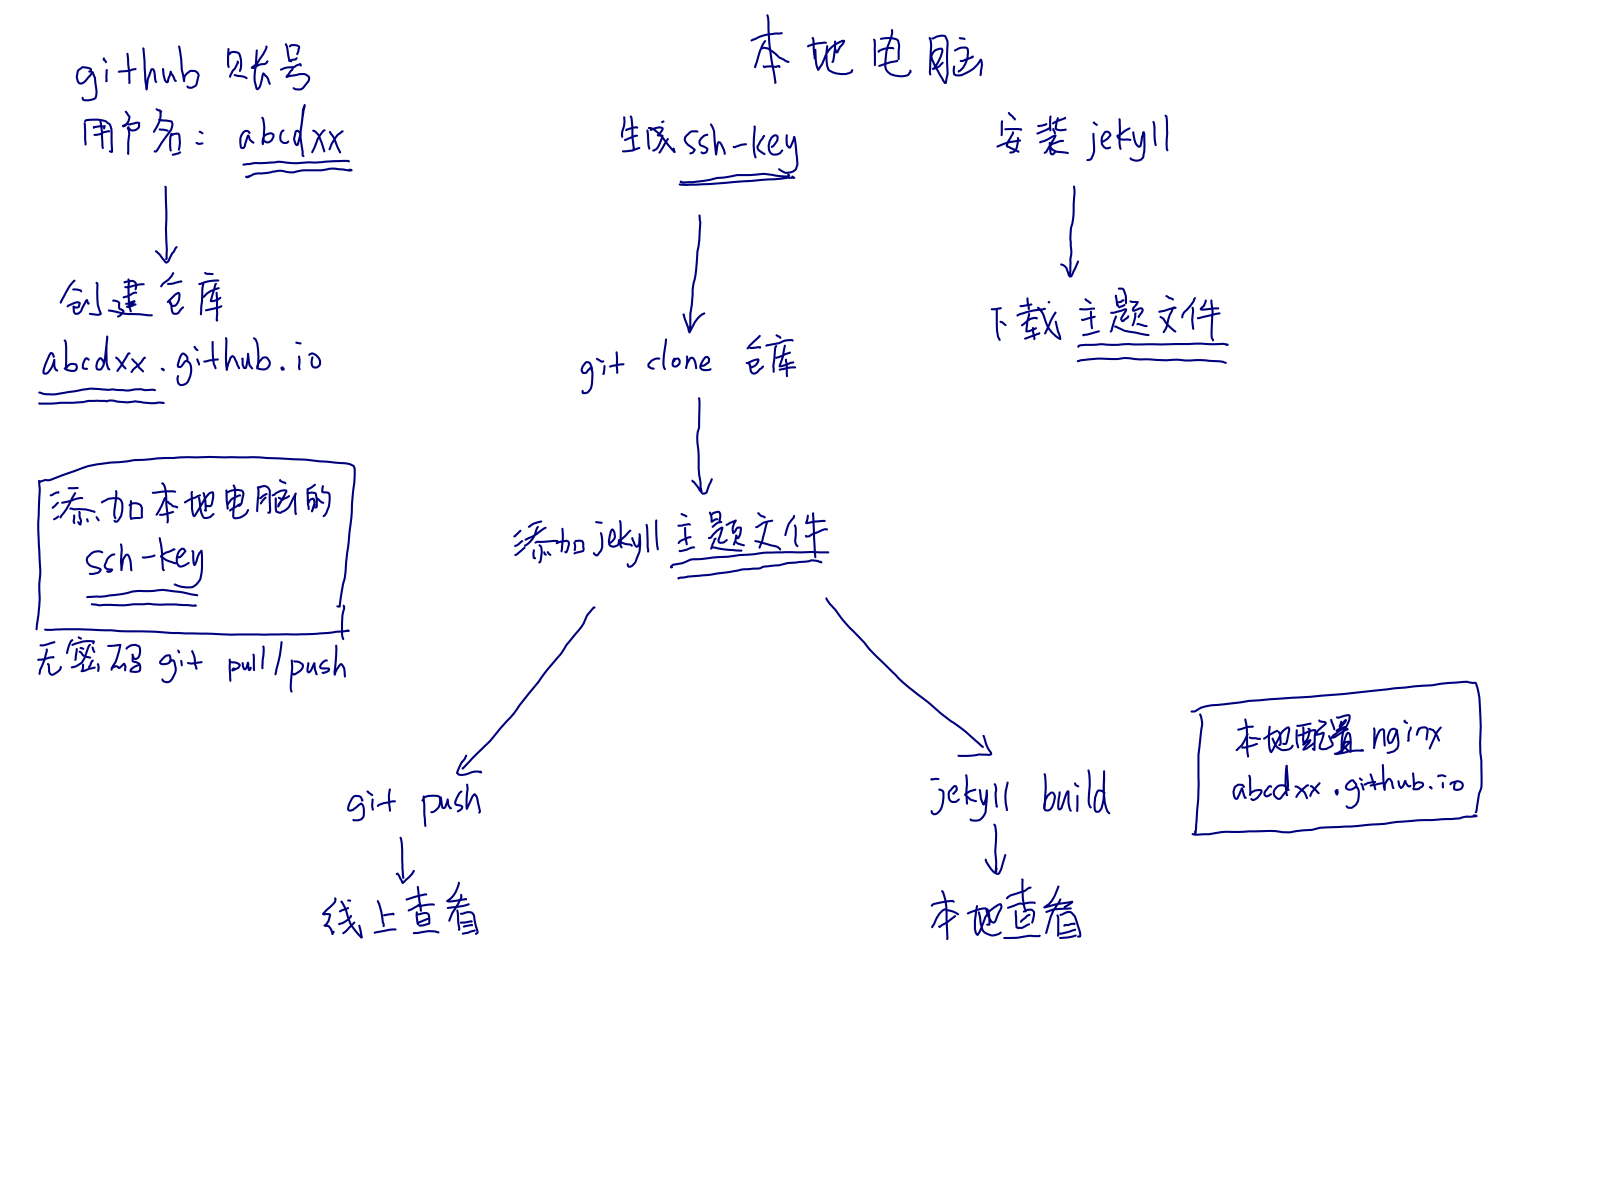 github 账号
用户名: abcdxx
创建仓库
abcdxx.github.io
添加本地电脑的
ssh-key
无密码 git pull/push
本地电脑
生成 ssh-key
安装 jekyll
下载 主题文件
git clone 仓库
添加 jekyll 主题文件
git push
线上查看
jekyll build
本地查看
本地配置 nginx
abcdxx.github.io